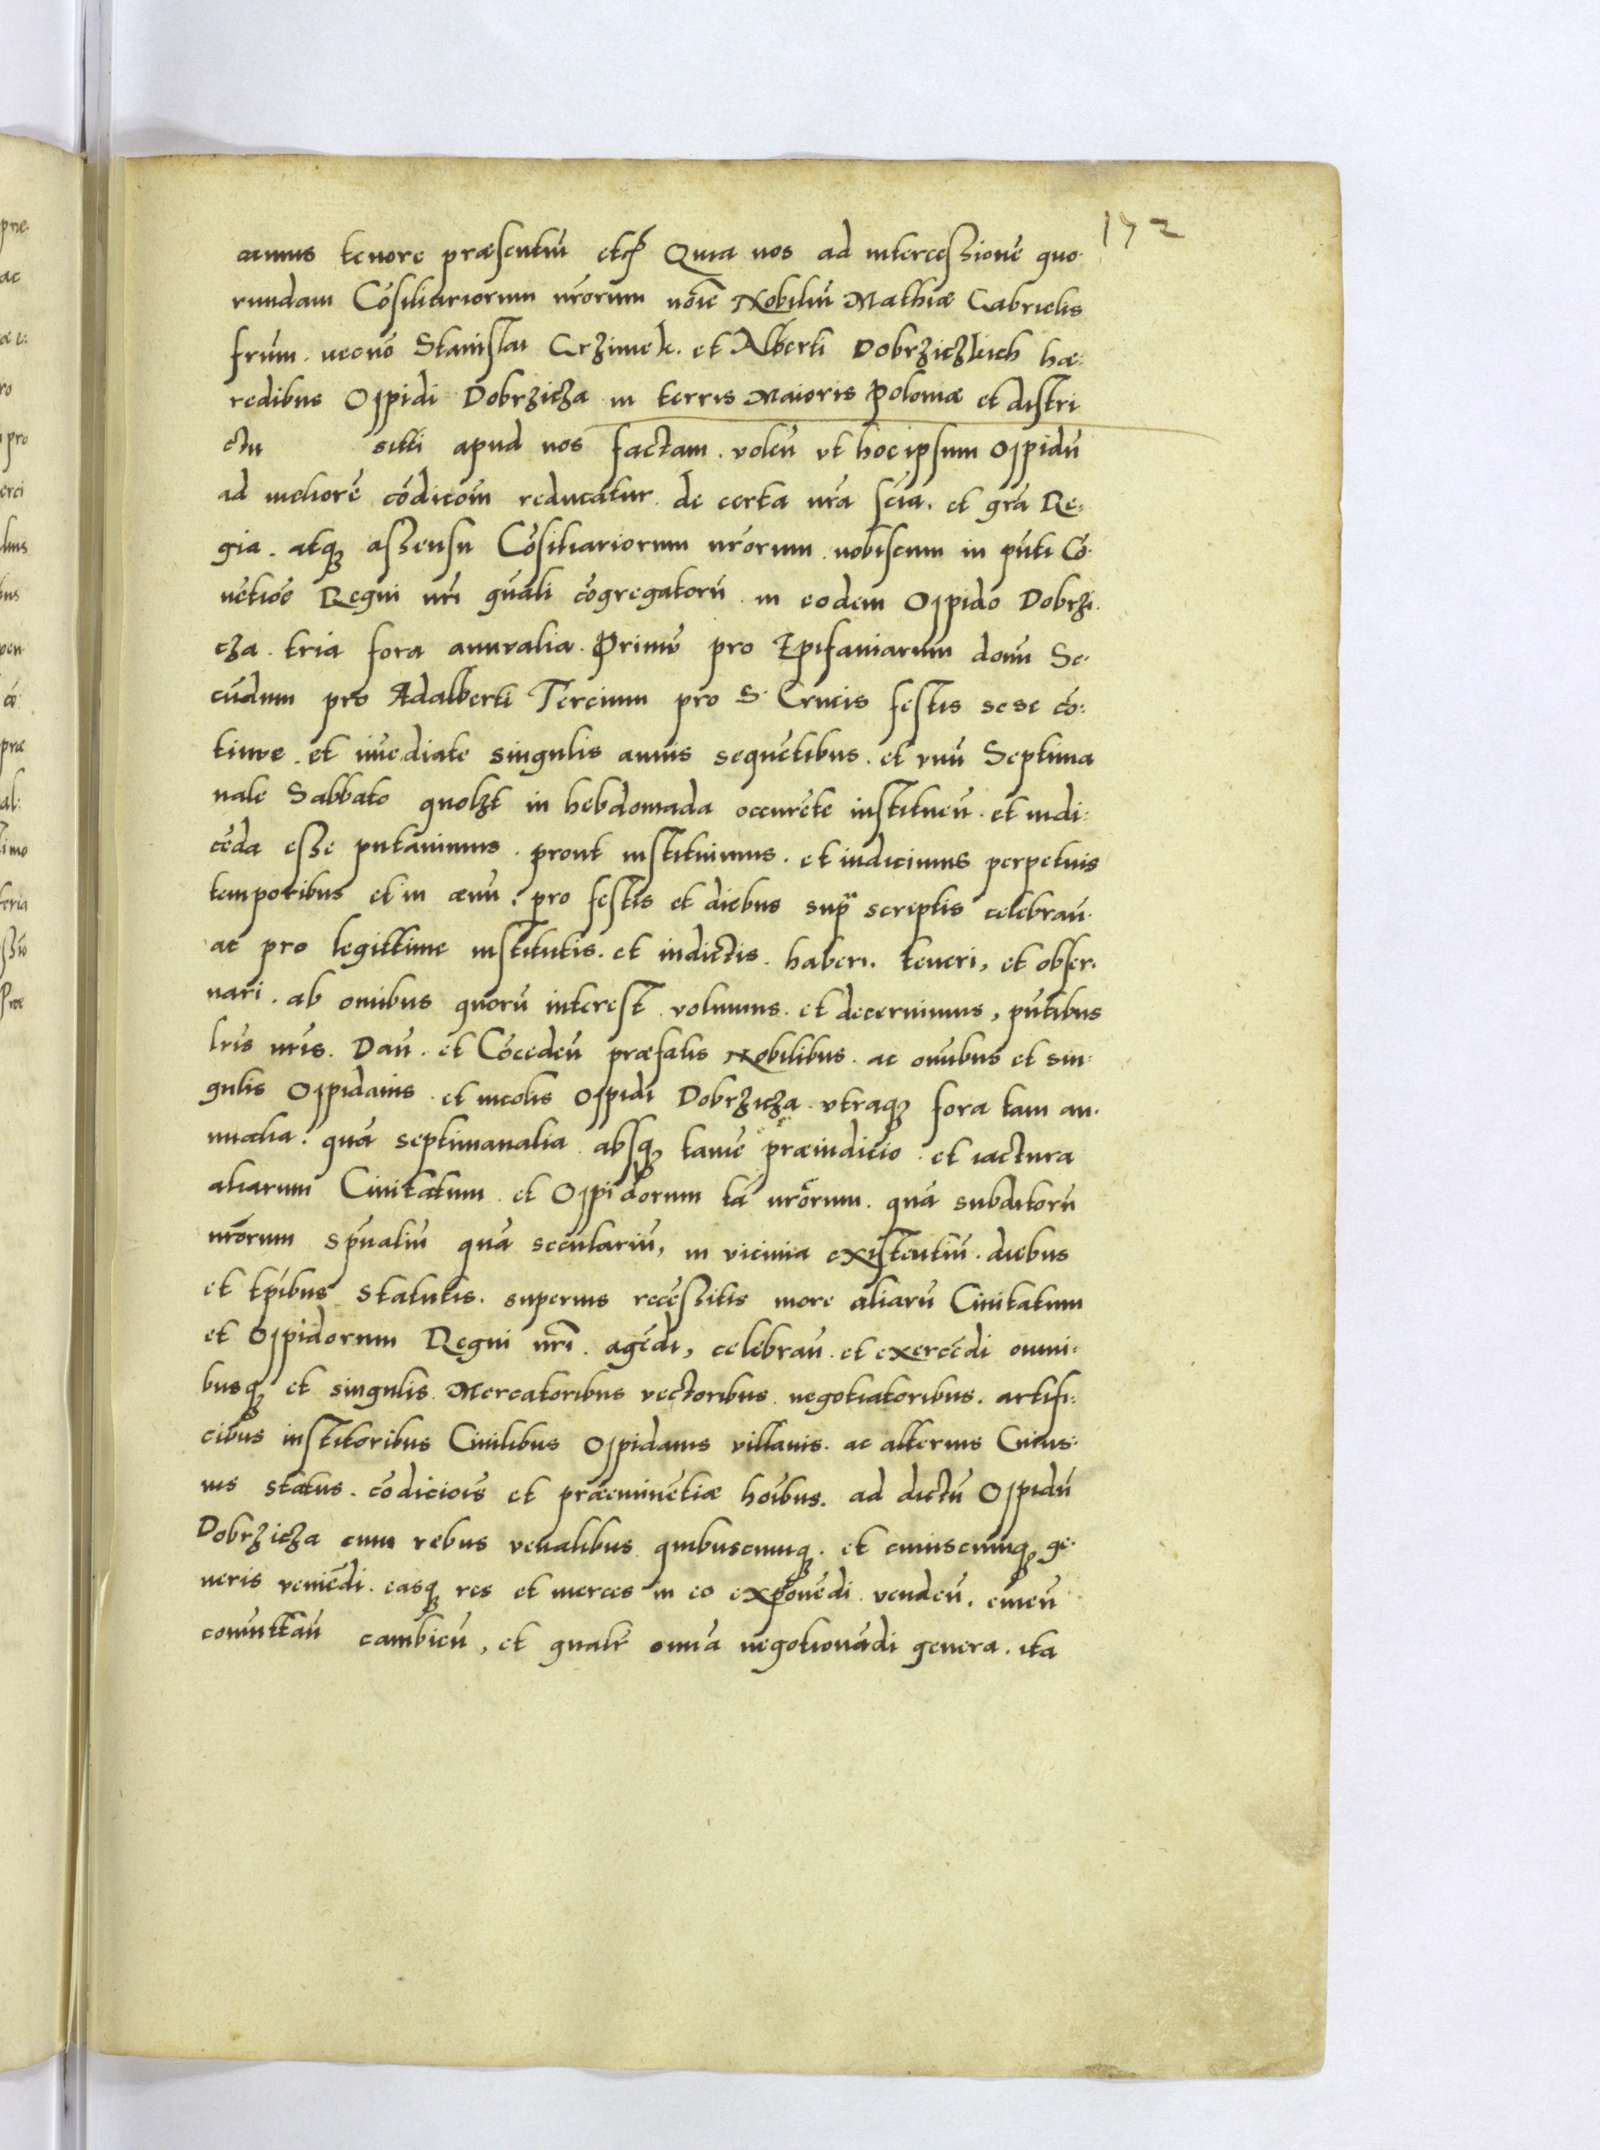 172
amus tenore præsentiū etc̄ Quia nos ad intercessionē quo-
rundam Cōsiliariorum nr̄orum nōīe Nobiliū Mathiæ Gabrielis
frūm. necnō Stanislai Grzimek. et Alberti Dobrziczkich hæ-
redibus Oppidi Dobrzicza in terris Maioris Poloniæ et distri
ctu siti apud nos factam. volen̄ vt hoc ipsum Oppidū
ad meliorē cōdicōm̄ reducatur de certa nr̄a scīa. et gr̄a Re-
gia. atq; assensu Cōsiliariorum nr̄orum nobiscum in pn̄ti Cō-
uētiōe Regni nr̄i gn̄ali cōgregatorū in eodem Oppido Dobrzi-
cza. tria fora annualia. Primū pro Epifaniarum domī Se-
cūdum pro Adalberti Tercium pro S. Crucis festis sese cō-
tinue. et im̄ediate singulis annis sequētibus. et vnū Septima
nale Sabbato quolzt in hebdomada occurēte instituen̄. et indi-
cēda esse putauimus. prout instituimus. et indicimus perpetuis
temporibus et in æuū. pro festis et diebus supra scriptis celebran̄.
ac pro legittime institutis. et indictis. haberi. teneri, et obser-
uari. ab om̄ibus quorū interest. volumus. et decernimus, pn̄tibus
lr̄is nr̄is. Dan̄. et Cōceden̄ præfatis Nobilibus. ac om̄ibus et sin-
gulis Oppidanis. et incolis Oppidi Dobrzicza. vtraq; fora tam an-
nualia. quā septimanalia. absq; tamē præiudicio. et iactura
aliarum Ciuitatum. et Oppidorum tā nr̄orum. quā subditorū
nr̄orum sp̄ualiū quā seculariū, in vicinia existentiū. diebus
et tp̄ibus statutis. superius recessitis more aliarū Ciuitatum
et Oppidorum Regni nr̄i. agēdi, celebran̄. et exercēdi omni-
busq; et singulis. Mercatoribus vectoribus negotiatoribus. artifi-
cibus institoribus Ciuilibus Oppidanis villanis. ac alterius Cuius-
uis status. cōdiciōīs et præeminētiæ hōībus. ad dictū Oppidū
Dobrzicza cum rebus venalibus quibuscumq;. et cuiuscumq; ge-
neris veniēdi. easq; res et merces in eo exponēdi. venden̄. emen̄
com̄uttan̄ cambien̄, et gn̄alr̄ omīa negotionādi genera. ita